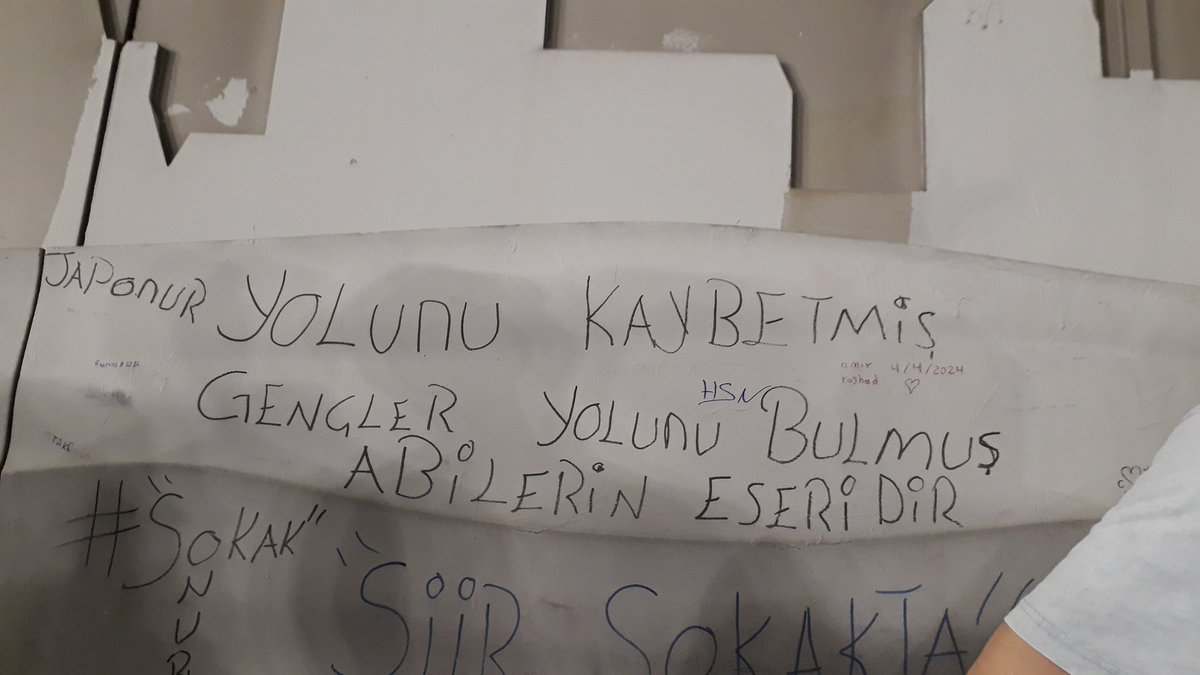 JAPONUR
YOLUNU KAYBETMİŞ
amır 4/4/2024
rashad
HSN
GENÇLER YOLUNU BULMUŞ
TAKE
ABİLERİN ESERİDİR
#"SOKAK"
NUR
"ŞİİR SOKAKTA"